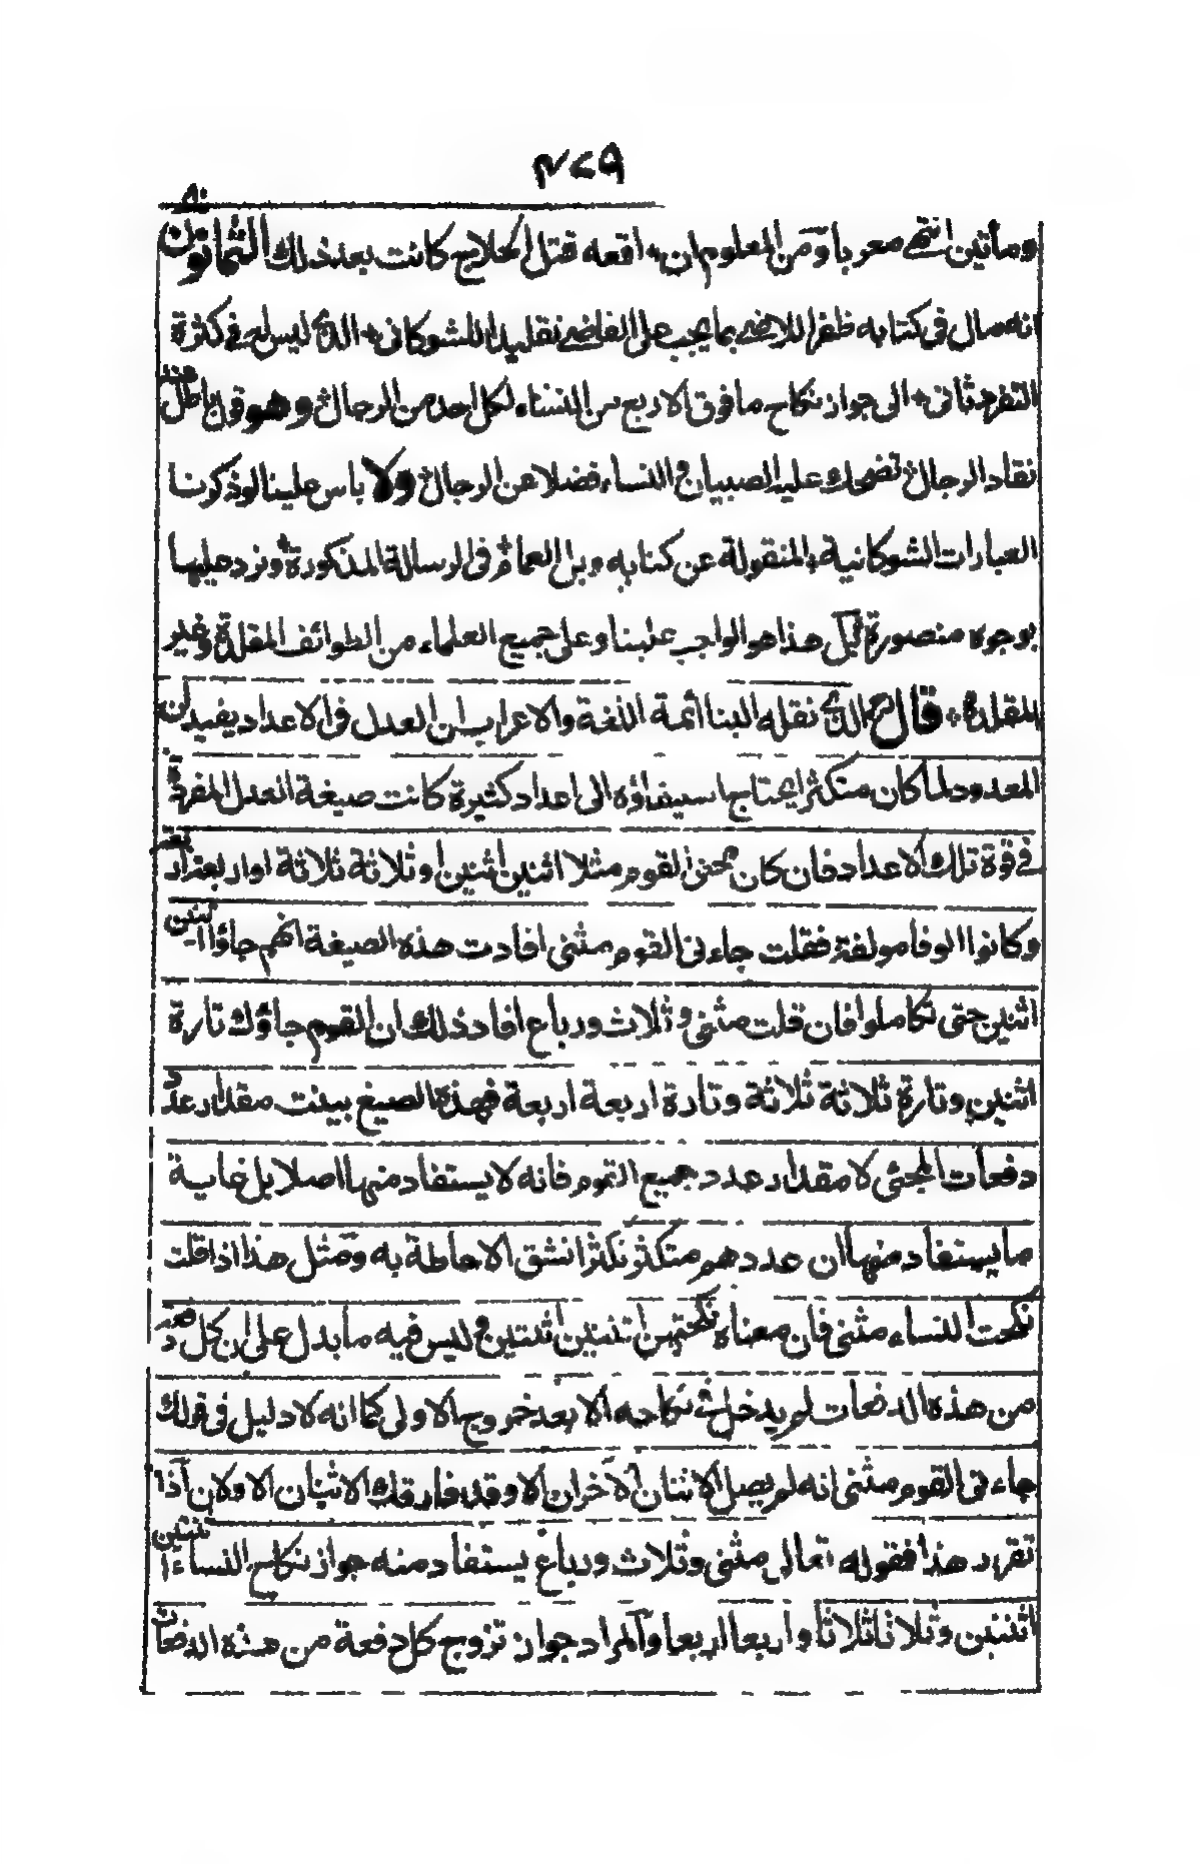 ٢٧٩
ومأتين انتهى معربا ومن المعلوم ان واقعة قتل الحلاج كانت بعد ذلك الثمانون
انه مال في كتابه ظفر اللاضي بما يجب على القاضي تقليدا للشوكاني الذي ليس له في كثرة
التفرد ثاني الى جواز نكاح ما فوق الاربع من النساء لكل احد من الرجال وهو قول باطل عند
نقاد الرجال تضحك عليه الصبيان والنساء فضلا عن الرجال ولا باس علينا لو ذكرنا
العبارات الشوكانية المنقولة عن كتابه وبل الغمام في الرسالة المذكورة ونرد عليها
بوجوه منصورة بل هذا هو الواجب علينا وعلى جميع العلماء من الطوائف المقلدة وغير
المقلدة قال الذي نقله الينا ائمة اللغة والاعراب ان العدل في الاعداد يفيد ان
المعدود لما كان متكثرا يحتاج استيفاؤه الى اعداد كثيرة كانت صيغة العدل المفردة
في قوة تلك الاعداد فان كان مجئ القوم مثلا اثنين اثنين او ثلاثة ثلاثة او اربعة اربعة
وكانوا الوفا مولفة فقلت جاءني القوم مثنى افادت هذه الصيغة انهم جاؤا اثنين
اثنين حتى تكاملوا فان قلت مثنى وثلاث ورباع افاد ذلك ان القوم جاؤك تارة
اثنين وتارة ثلاثة ثلاثة وتارة اربعة اربعة فهذه الصيغ بينت مقدار عدد
دفعات المجئ لا مقدار عدد جميع القوم فانه لا يستفاد منها اصلا بل غاية
ما يستفاد منها ان عددهم متكثر تكثرا تشق الاحاطة به ومثل هذا اذا قلت
نكحت النساء مثنى فان معناه نكحتهن اثنتين اثنتين وليس فيه ما يدل على ان كل دفعة
من هذه الدفعات لم يدخل في نكاحه الا بعد خروج الاولى كما انه لا دليل في قولك
جاءني القوم مثنى انه لم يصل الاثنان الآخران الا وقد فارقك الاثنان الاولان اذا
تقرر هذا فقوله تعالى مثنى وثلاث ورباع يستفاد منه جواز نكاح النساء اثنتين
اثنتين وثلاثا ثلاثا واربعا اربعا والمراد جواز تزوج كل دفعة من هذه الدفعات